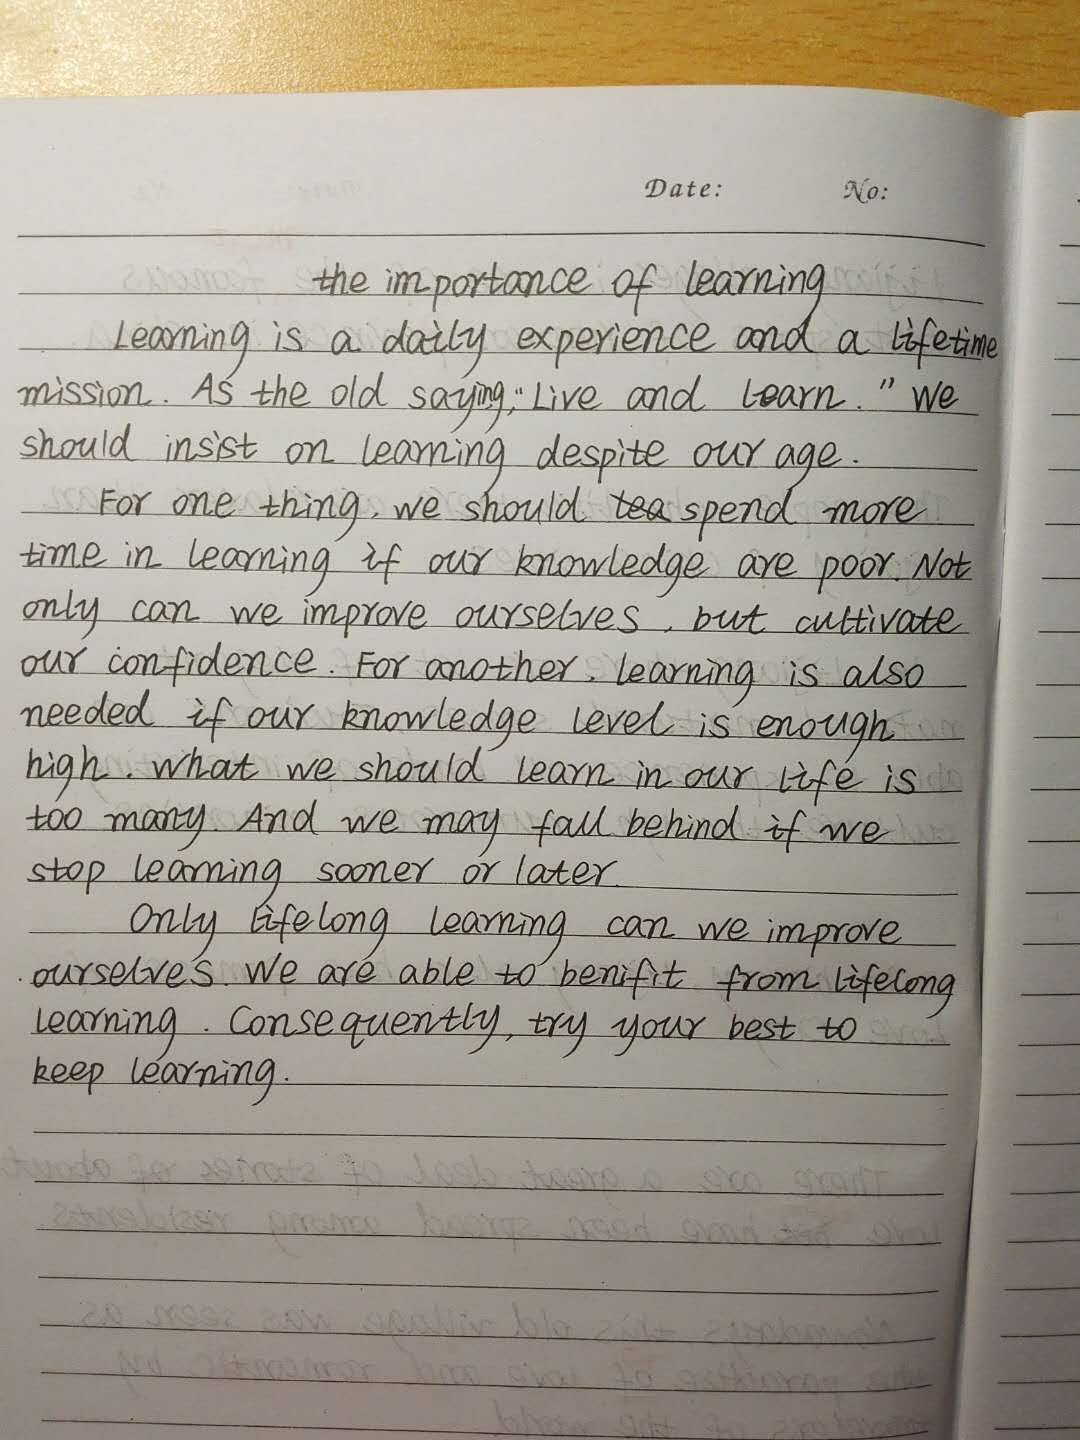 Date: No:
the importance of learning
Learning is a daily experience and a lifetime
mission. As the old saying, "Live and learn." We
should insist on learning despite our age.
For one thing, we should tea spend more
time in learning if our knowledge are poor. Not
only can we improve ourselves, but cultivate
our confidence. For another, learning is also
needed if our knowledge level is enough
high. What we should learn in our life is
too many. And we may fall behind if we
stop learning sooner or later.
Only lifelong learning can we improve
ourselves. We are able to benifit from lifelong
learning. Consequently, try your best to
keep learning.